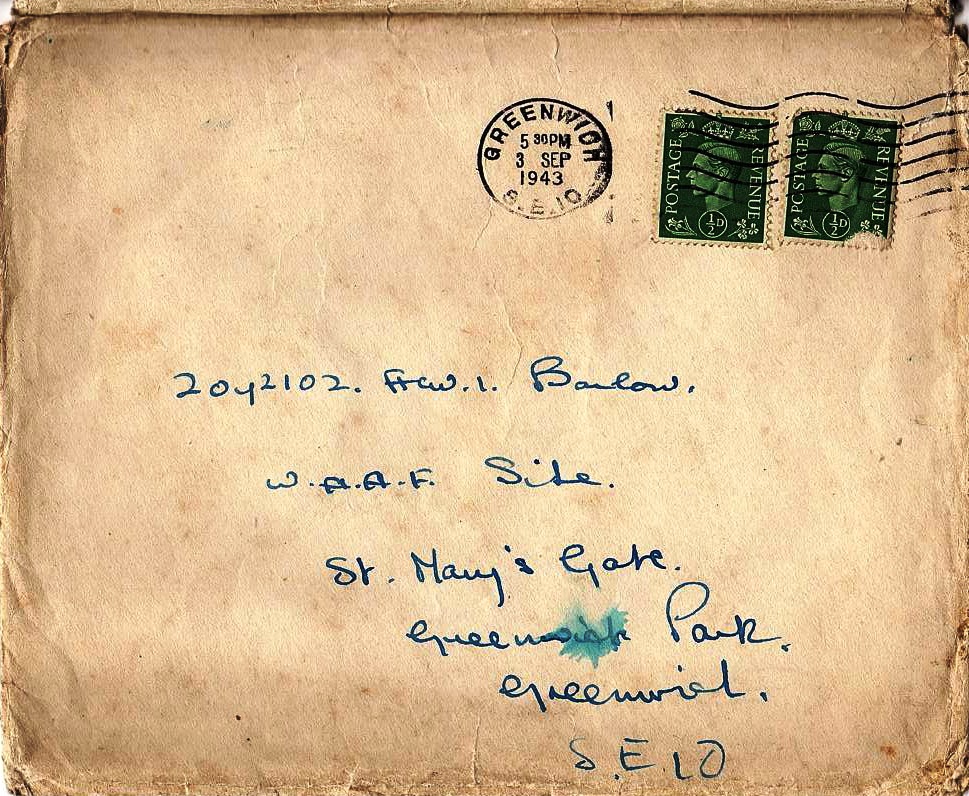 GREENWICH
5 30PM
3 SEP
1943
S.E.10
POSTAGE REVENUE
½D
POSTAGE REVENUE
½D
2042102. Acw.1. Barlow.
W.A.A.F. Site.
St. Mary's Gate.
Greenwich Park.
Greenwich.
S.E.10